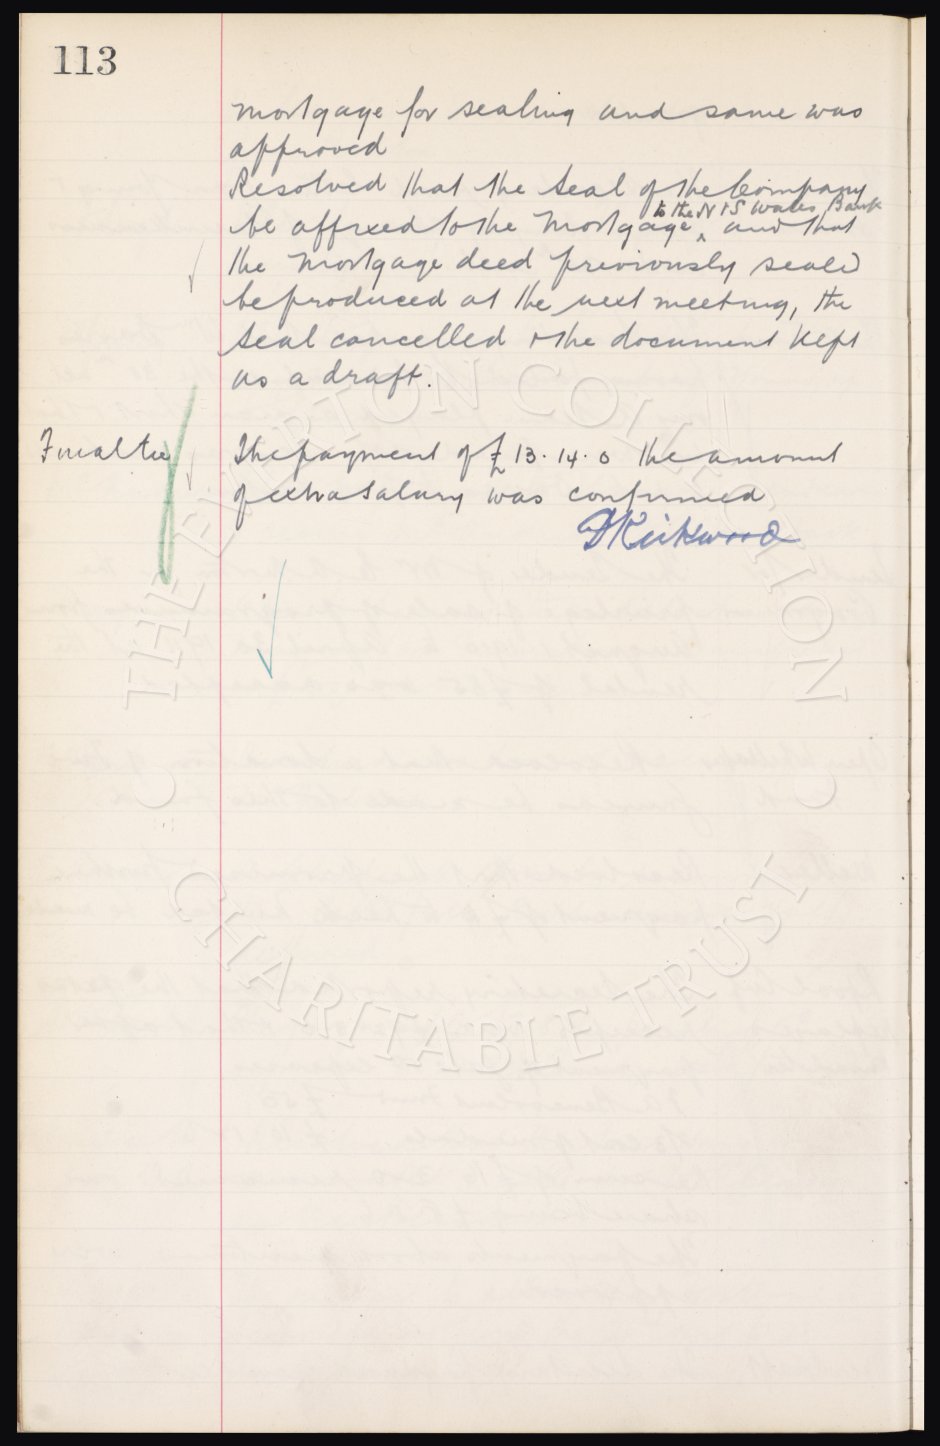 113
mortgage for sealing and same was
approved
Resolved that the seal of the Company
to the N & S Wales Bank
be affixed to the Mortgage ‸ and that
the Mortgage deed previously sealed
be produced at the next meeting, the
seal cancelled & the document kept
as a draft.
The payment of £13.14.0 the amount
of extra salary was confirmed
D Kirkwood
THE EVERTON COLLECTION
CHARITABLE TRUST